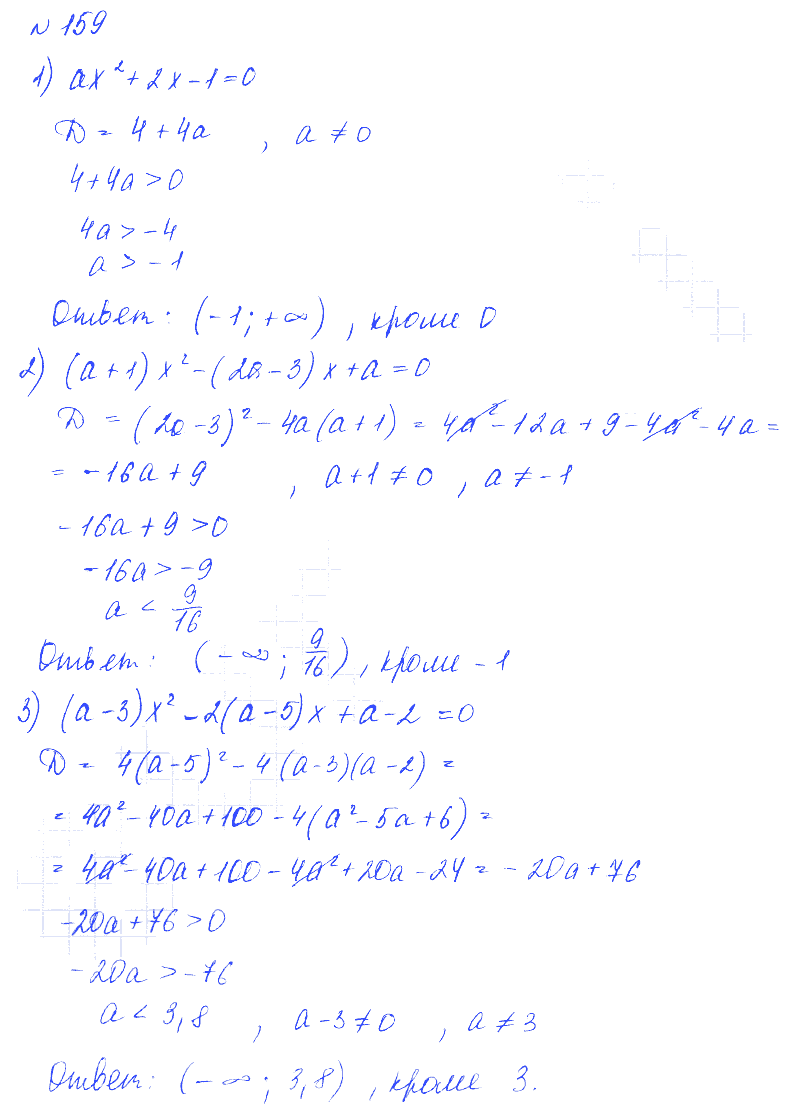 № 159
1) ax² + 2x - 1 = 0
D = 4 + 4a , a ≠ 0
4 + 4a > 0
4a > -4
a > -1
Ответ: (-1; +∞) , кроме 0
2) (a + 1) x² - (2a - 3) x + a = 0
D = (2a - 3)² - 4a (a + 1) = 4a² - 12a + 9 - 4a² - 4a =
= -16a + 9 , a + 1 ≠ 0 , a ≠ -1
-16a + 9 > 0
-16a > -9
a < 9/16
Ответ: (-∞; 9/16) , кроме -1
3) (a - 3) x² - 2(a - 5) x + a - 2 = 0
D = 4(a - 5)² - 4 (a - 3)(a - 2) =
= 4a² - 40a + 100 - 4(a² - 5a + 6) =
= 4a² - 40a + 100 - 4a² + 20a - 24 = - 20a + 76
-20a + 76 > 0
-20a > -76
a < 3,8 , a - 3 ≠ 0 , a ≠ 3
Ответ: (-∞; 3,8) , кроме 3.